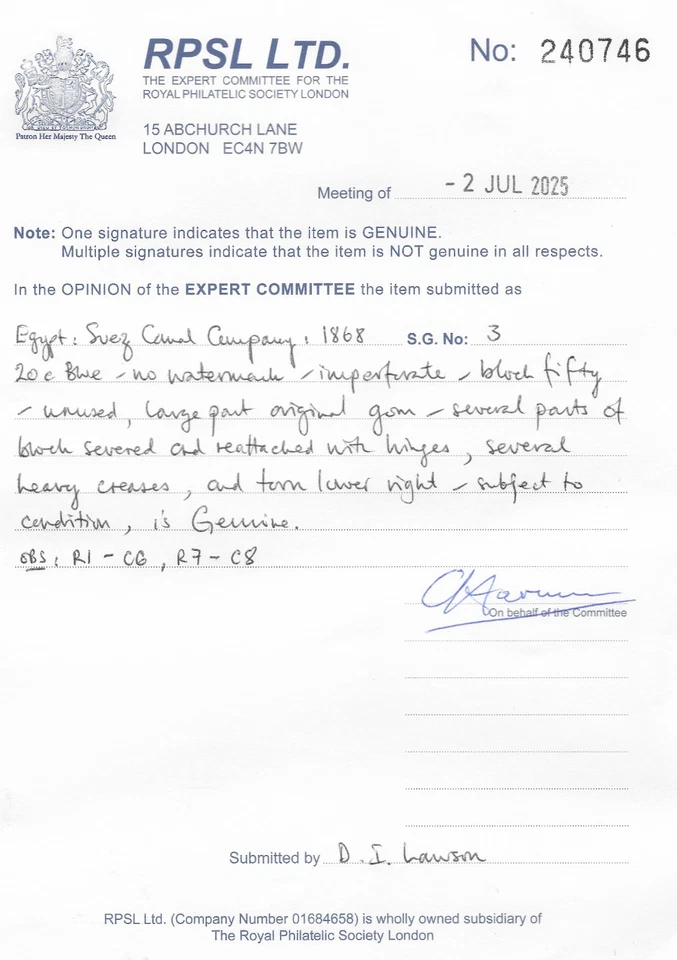 RPSL LTD.
THE EXPERT COMMITTEE FOR THE
ROYAL PHILATELIC SOCIETY LONDON
No: 240746
Patron Her Majesty The Queen
15 ABCHURCH LANE
LONDON EC4N 7BW
Meeting of - 2 JUL 2025
Note: One signature indicates that the item is GENUINE.
Multiple signatures indicate that the item is NOT genuine in all respects.
In the OPINION of the EXPERT COMMITTEE the item submitted as
Egypt: Suez Canal Company: 1868 S.G. No: 3
20c Blue - no watermark - imperforate - block fifty
- unused, large part original gum - several parts of
block severed and reattached with hinges, several
heavy creases, and torn lower right - subject to
condition, is Genuine.
OBS: R1 - C6, R7 - C8
On behalf of the Committee
Submitted by D. I. Lawson
RPSL Ltd. (Company Number 01684658) is wholly owned subsidiary of
The Royal Philatelic Society London